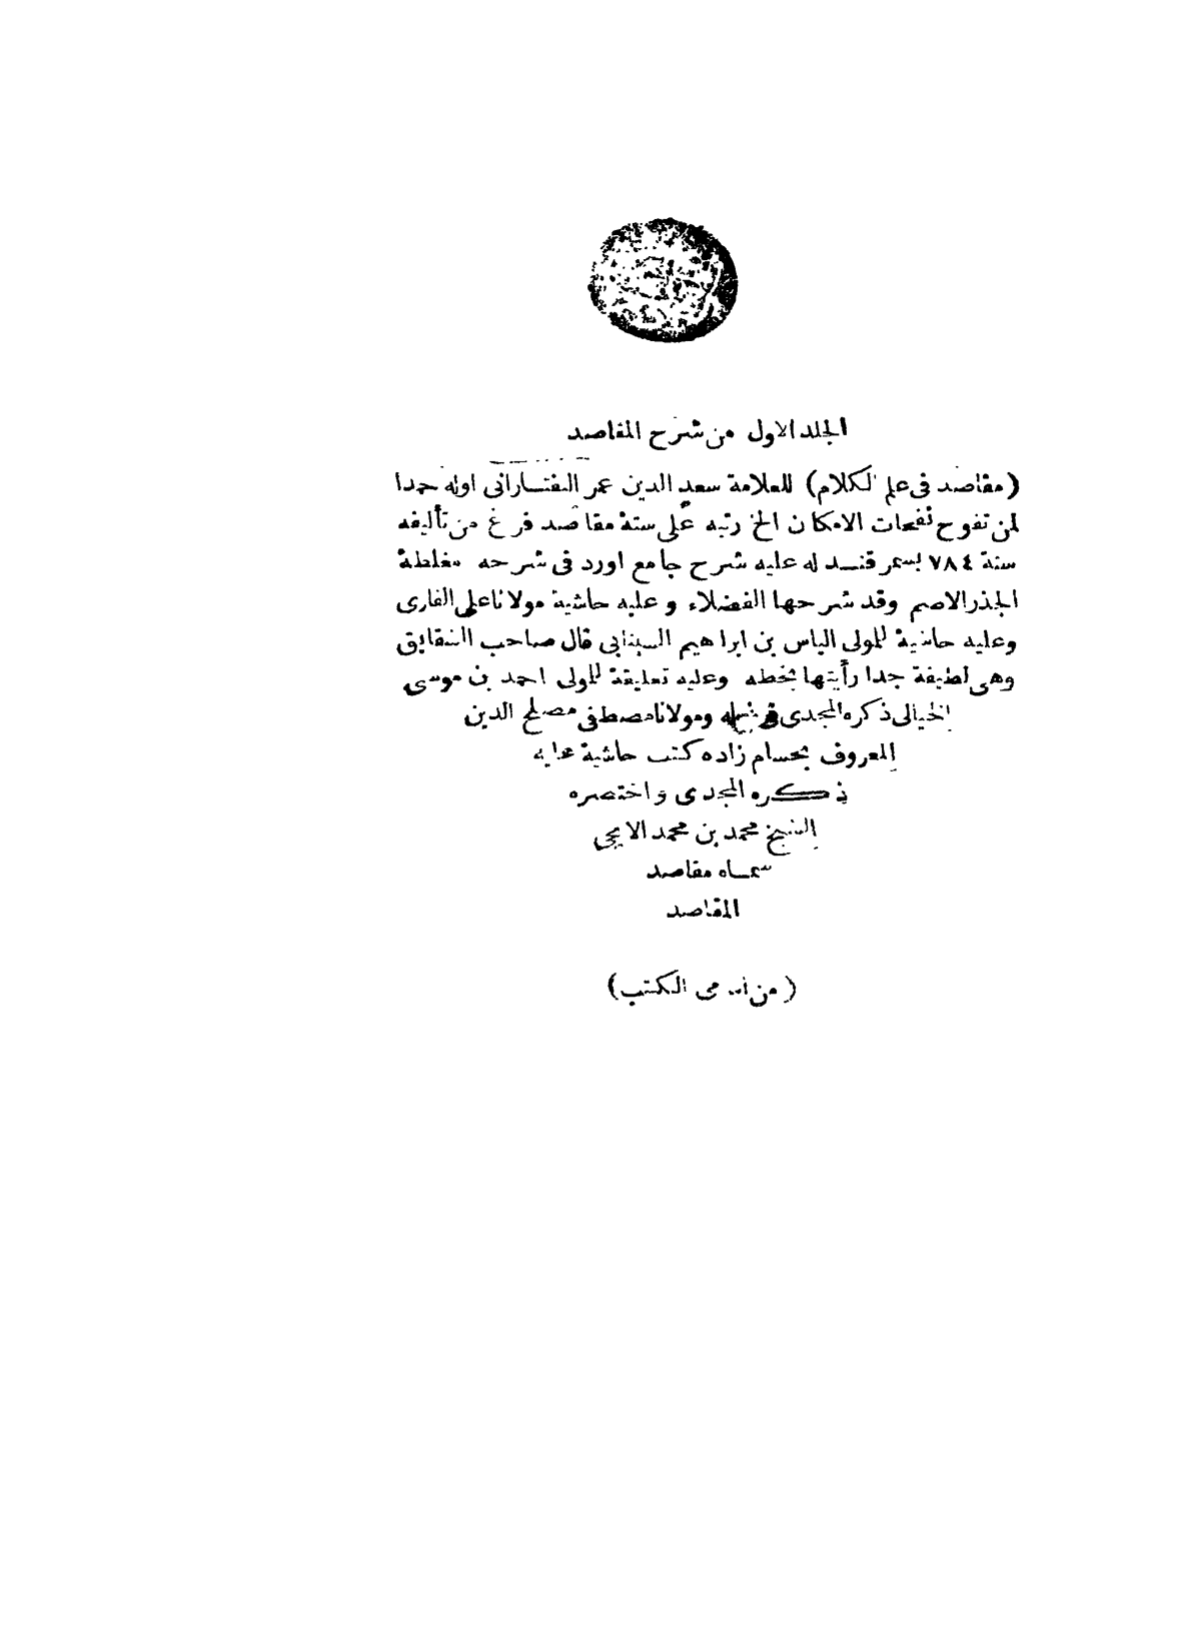 الجلد الاول من شرح المقاصد
(مقاصد فى علم الكلام) للعلامة سعد الدين عمر التفتــازانى اوله حمدا
لمن تفوح نفحات الامكان الخ رتبه على ستة مقاصد فرغ من تأليفه
سنة ٧٨٤ بسمرقنــد له عليه شرح جامع اورد فى شرحه مغلطة
الجذر الاصم وقد شرحها الفضلاء وعليه حاشية مولانا على القارى
وعليه حاشية للمولى الياس بن ابراهيم السينابى قال صاحب الشقايق
وهى لطيفة جدا رأيتها بخطه وعليه تعليقة للمولى احمد بن موسى
الخيالى ذكره المجدى فى ومولانا مصطفى مصلح الدين
المعروف بحسام زاده كتب حاشية عليه
ذكره المجدى واختصره
الشيخ محمد بن محمد الايجى
سمــاه مقاصد
المقاصد
(من اسامى الكتب)